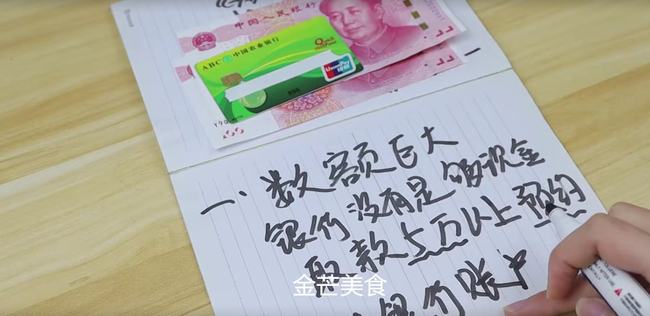 中国人民银行
ABC 中国农业银行
UnionPay
银联
100
一、数额巨大
银行没有足够现金
取款5万以上预约
银行账户
金芒美食